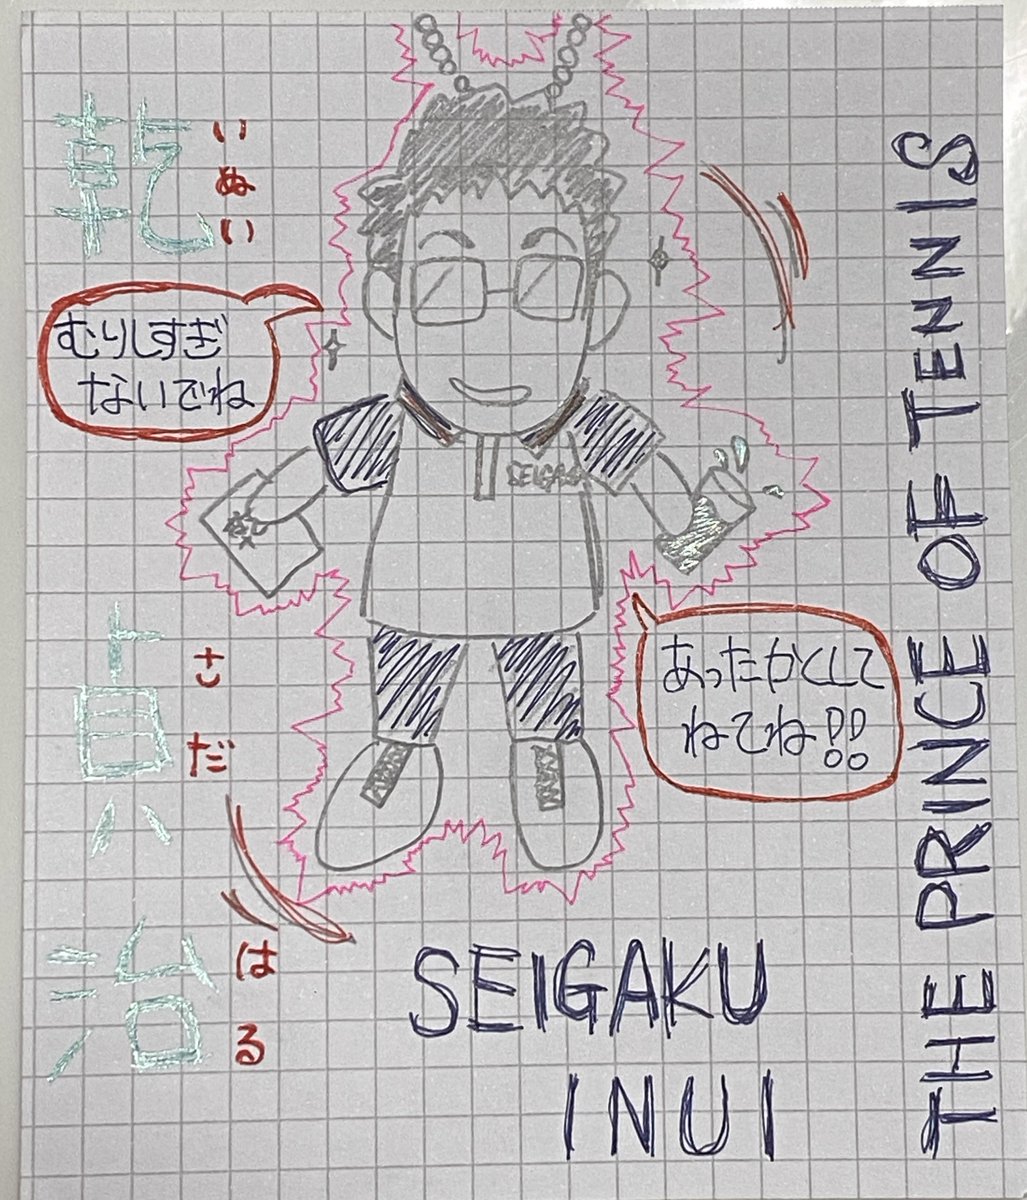 乾
いぬい
むりしすぎ
ないでね
SEIGAKU
貞
さだ
治
はる
あったかくして
ねてね!!
SEIGAKU
INUI
THE PRINCE OF TENNIS